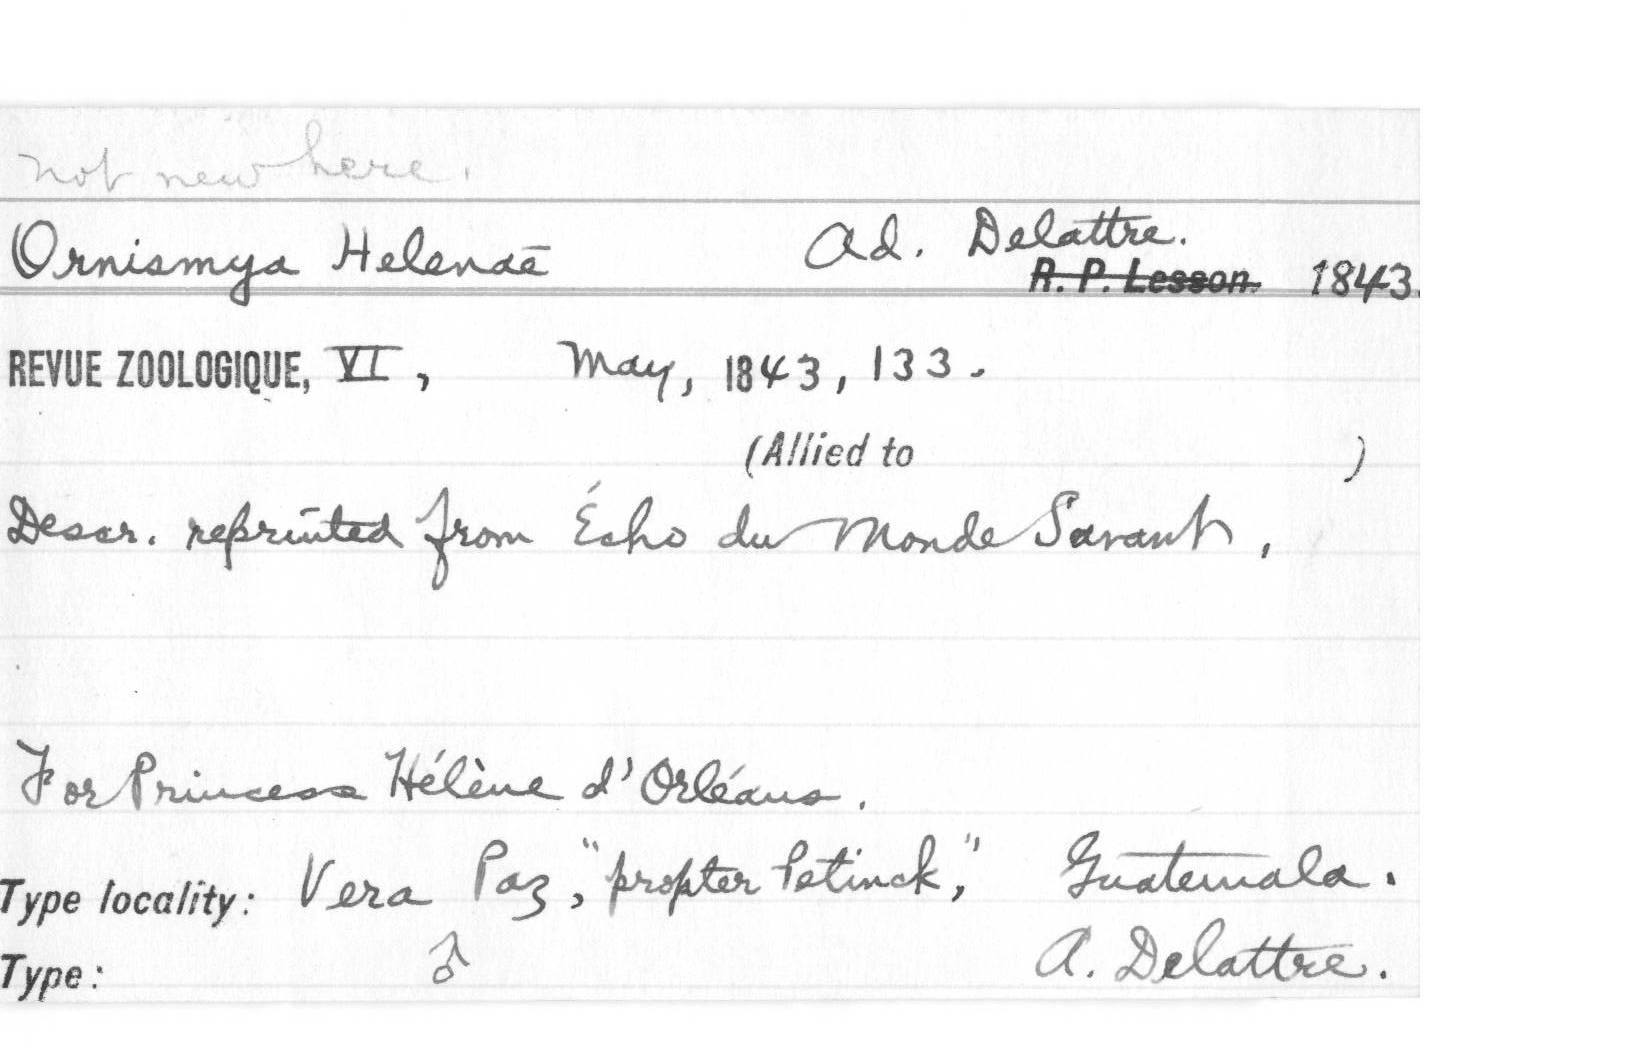 not new here.
Ornismya Helenae Ad. Delattre.
R. P. Lesson. 1843.
REVUE ZOOLOGIQUE, VI, May, 1843, 133.
(Allied to )
Descr. reprinted from Écho du Monde Savant,
For Princess Hélène d'Orléans.
Type locality: Vera Paz, "propter Petinck," Guatemala.
Type: ♂ A. Delattre.